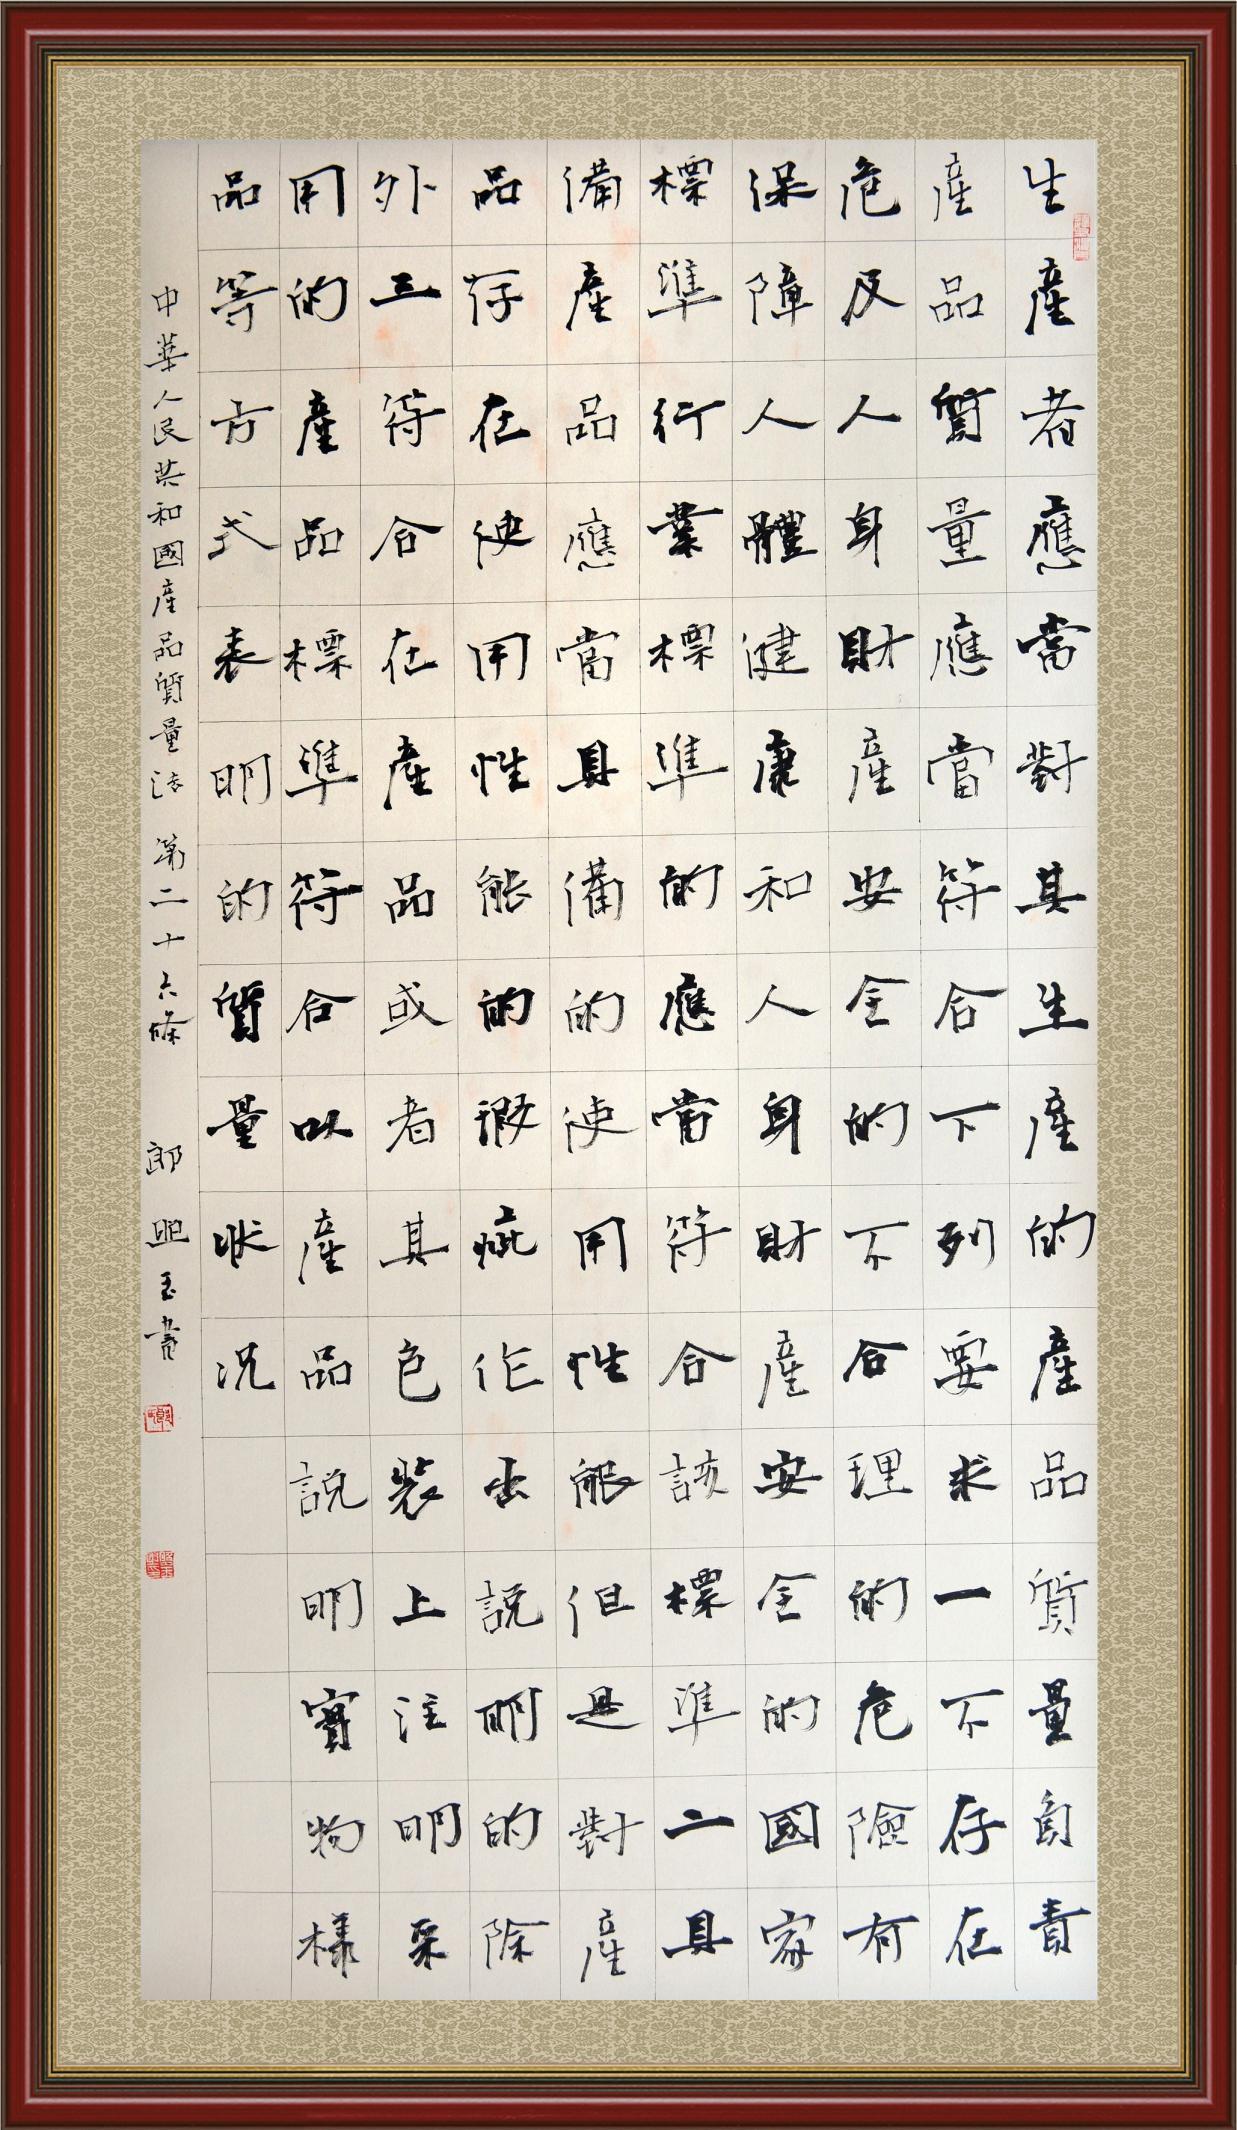 生產者應當對其生產的產品質量負責
產品質量應當符合下列要求一不存在
危及人身財產安全的不合理的危險有
保障人體健康和人身財產安全的國家
標準行業標準的應當符合該標準二具
備產品應當具備的使用性能但是對產
品存在使用性能的瑕疵作出說明的除
外三符合在產品或者其包裝上注明采
用的產品標準符合以產品說明實物樣
品等方式表明的質量狀況
中華人民共和國產品質量法 第二十六條 郎 玉書